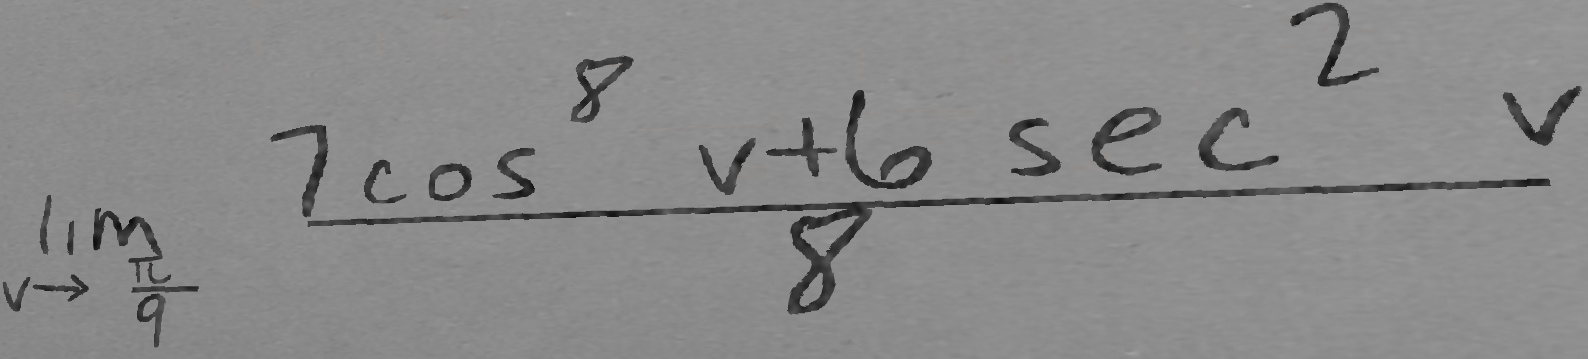 \lim_{v \to \frac{\pi}{9}} \frac{7 \cos^8 v + 6 \sec^2 v}{8}